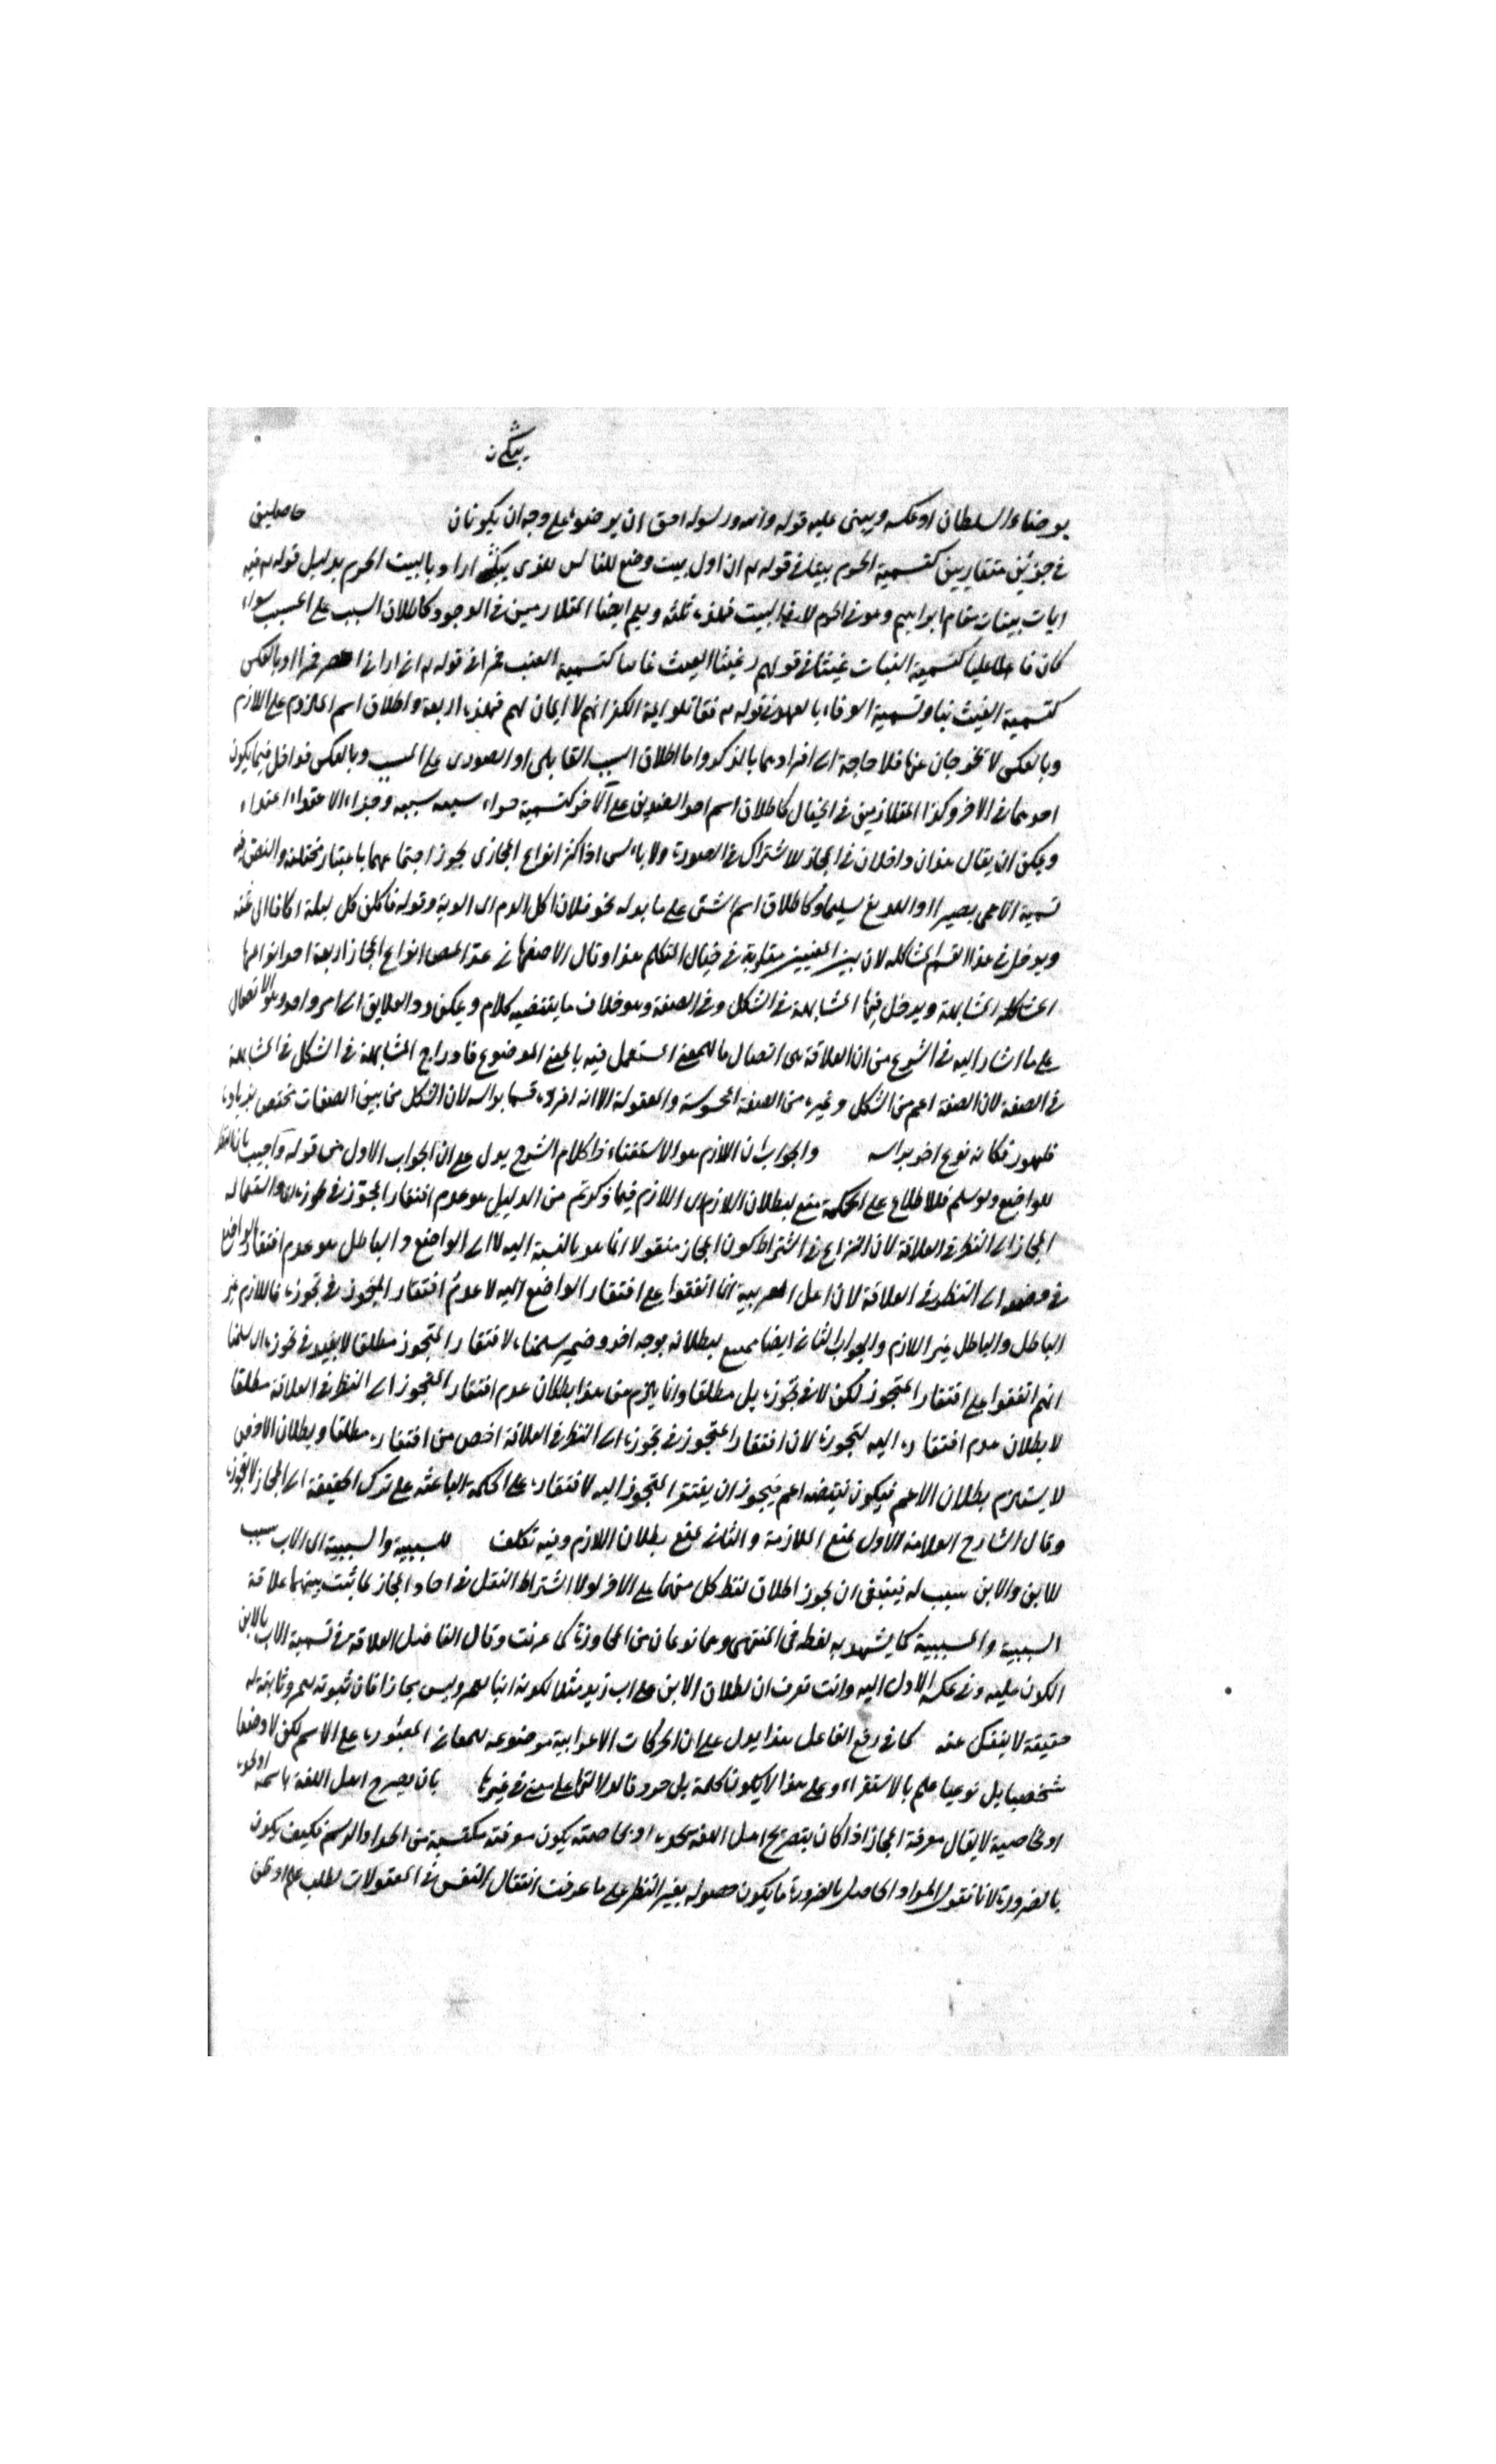 برضاء السلطان او عكسه ويبنى عليه قوله والله ورسوله احق ان يرضوه على وجه ان يكونان حاصلين
في حيزين متقاربين كتسمية الحرم بيتا في قوله تع ان اول بيت وضع للناس للذى ببكة اراد بالبيت الحرم بدليل قوله تع فيه
ايات بينات مقام ابراهيم وهو في الحرم لا في البيت فهذه ثلثة ويعم ايضا المتلازمين في الوجود كاطلاق السبب على المسبب سواء
كان فاعليا كتسمية النبات غيثا في قولهم رعينا الغيث غائيا كتسمية العنب خمرا في قوله تع انى ارانى اعصر خمرا او بالعكس
كتسمية الغيث نباتا وتسمية الوفاء بالعهد في قوله تع فقاتلوا ائمة الكفر انهم لا ايمان لهم فهذه اربعة واطلاق اسم الملزوم على اللازم
وبالعكس لا تخرجان عنها فلا حاجة الى افرادهما بالذكر واما اطلاق السبب القابلى او الصورى على المسبب وبالعكس فداخل فيما يكون
احدهما في الاخر وكذا المتلازمين في الخيال كاطلاق اسم احد الضدين على الآخر كتسمية جزاء سيئة سيئة وجزاء الاعتداء اعتداء
ويمكن ان يقال هذان داخلان في المجاز للاشتراك في الصورة ولا باس اذ اكثر انواع المجازى يجوز اجتماعهما باعتبار مختلفة والنقض فيه
تسمية الاعمى بصيرا او اللديغ سليما وكاطلاق اسم الشئ على ما بدله نحو فلان اكل الدم اى الدية وقوله تاكلن كل ليلة اكافا اى ثمنه
ويدخل في هذا القسم المشاكلة لان بين المعنيين مقاربة في خيال المتكلم هذا وقال الاصفهانى عند المص انواع المجاز اربعة احد انواعها
المشاكلة المشابهة ويدخل فيها المشابهة في الشكل وفي الصفة وهو خلاف ما يقتضيه كلامه ويمكن رد العلايق الى امر واحد وهو الاتصال
على ما اشار اليه في الشرح من ان العلاقة هى اتصال ما للمعنى المستعمل فيه بالمعنى الموضوع فادراج المشابهة في الشكل في المشابهة
في الصفة لان الصفة اعم من الشكل وغيره من الصفة المحسوسة والمعقولة الا انه افرده قسما براسه لان الشكل من بين الصفات تختص بزيادة
ظهور فكانه نوع اخر براسه والجواب ان اللازم هو الاستغناء ذا كلام الشرح يدل على ان الجواب الاول من قوله واجيب بان النظر
للواضع ولو سلم فللاطلاع على الحكمة منع لبطلان اللازم اى اللازم فيما ذكرتم من الدليل هو عدم افتقار المتجوز في تجوزه اى واستعماله
المجاز الى النظر في العلاقة لان النزاع في اشتراط كون المجاز منقولا انما هو بالنسبة اليه لا الى الواضع والباطل هو عدم افتقار الواضع
في وضعه الى النظر في العلاقة لان اهل العربية انما اتفقوا على افتقار الواضع اليه لا عدم افتقار المتجوز في تجوزه فاللازم غير
الباطل والباطل غير اللازم والجواب الثانى ايضا منع لبطلانه بوجه اخر وضمير سلمناه لافتقار المتجوز مطلقا لا بقيد في تجوزه اى سلمنا
انهم اتفقوا على افتقار المتجوز لكن لا في تجوزه بل مطلقا وانما يلزم من هذا بطلان عدم افتقار المتجوز الى النظر في العلاقة مطلقا
لا بطلان عدم افتقاره اليه لتجوزه لان افتقار المتجوز في تجوزه الى النظر في العلاقة اخص من افتقاره مطلقا وبطلان الاخص
لا يستلزم بطلان الاعم فيكون نقيضه اعم فيجوز ان يفتقر المتجوز اليه لافتقاره على الحكمة الباعثة على ترك الحقيقة الى المجاز لا لتجوزه
وقال الشارح العلامة الاول لمنع الملازمة والثانى لمنع بطلان اللازم وفيه تكلف للسببية والمسببية اى الاب سبب
للابن والابن مسبب له فينبغى ان يجوز اطلاق لفظ كل منهما على الاخر لولا اشتراط النقل في احاد المجاز لما ثبت بينهما علاقة
السببية والمسببية كما يشهد به لفظه في المنتهى وهما نوعان من المجاورة كما عرفت وقال الفاضل العلاقة في تسمية الاب بالابن
الكون عليه وفي عكسه الاول اليه وانت تعرف ان اطلاق الابن على اب زيد مثلا لكونه ابنا لعمرو ليس مجازا فان ثبوته لعمرو ثابتة له
حقيقة لا ينفك عنه كما في رفع الفاعل هذا يدل على ان الحركات الاعرابية موضوعة لمعانى المعتورة على الاسم لكن لا وضعا
شخصيا بل نوعيا علم بالاستقراء وعلى هذا لا يكون كلمة بل حرد فالدلالتها على معنى في غيرها بان يصرح اهل اللغة باسمه او بحده
او بخاصية لا يقال معرفة المجاز اذا كان بتصريح اهل اللغة بحده او بخاصته يكون معرفته مكتسبة من الحد او الرسم فكيف يكون
بالضرورة لانا نقول المراد الحاصل بالضرورة ما يكون حصوله بغير النظر على ما عرفت انتقال النفس في المعقولات لطلب علم او ظن